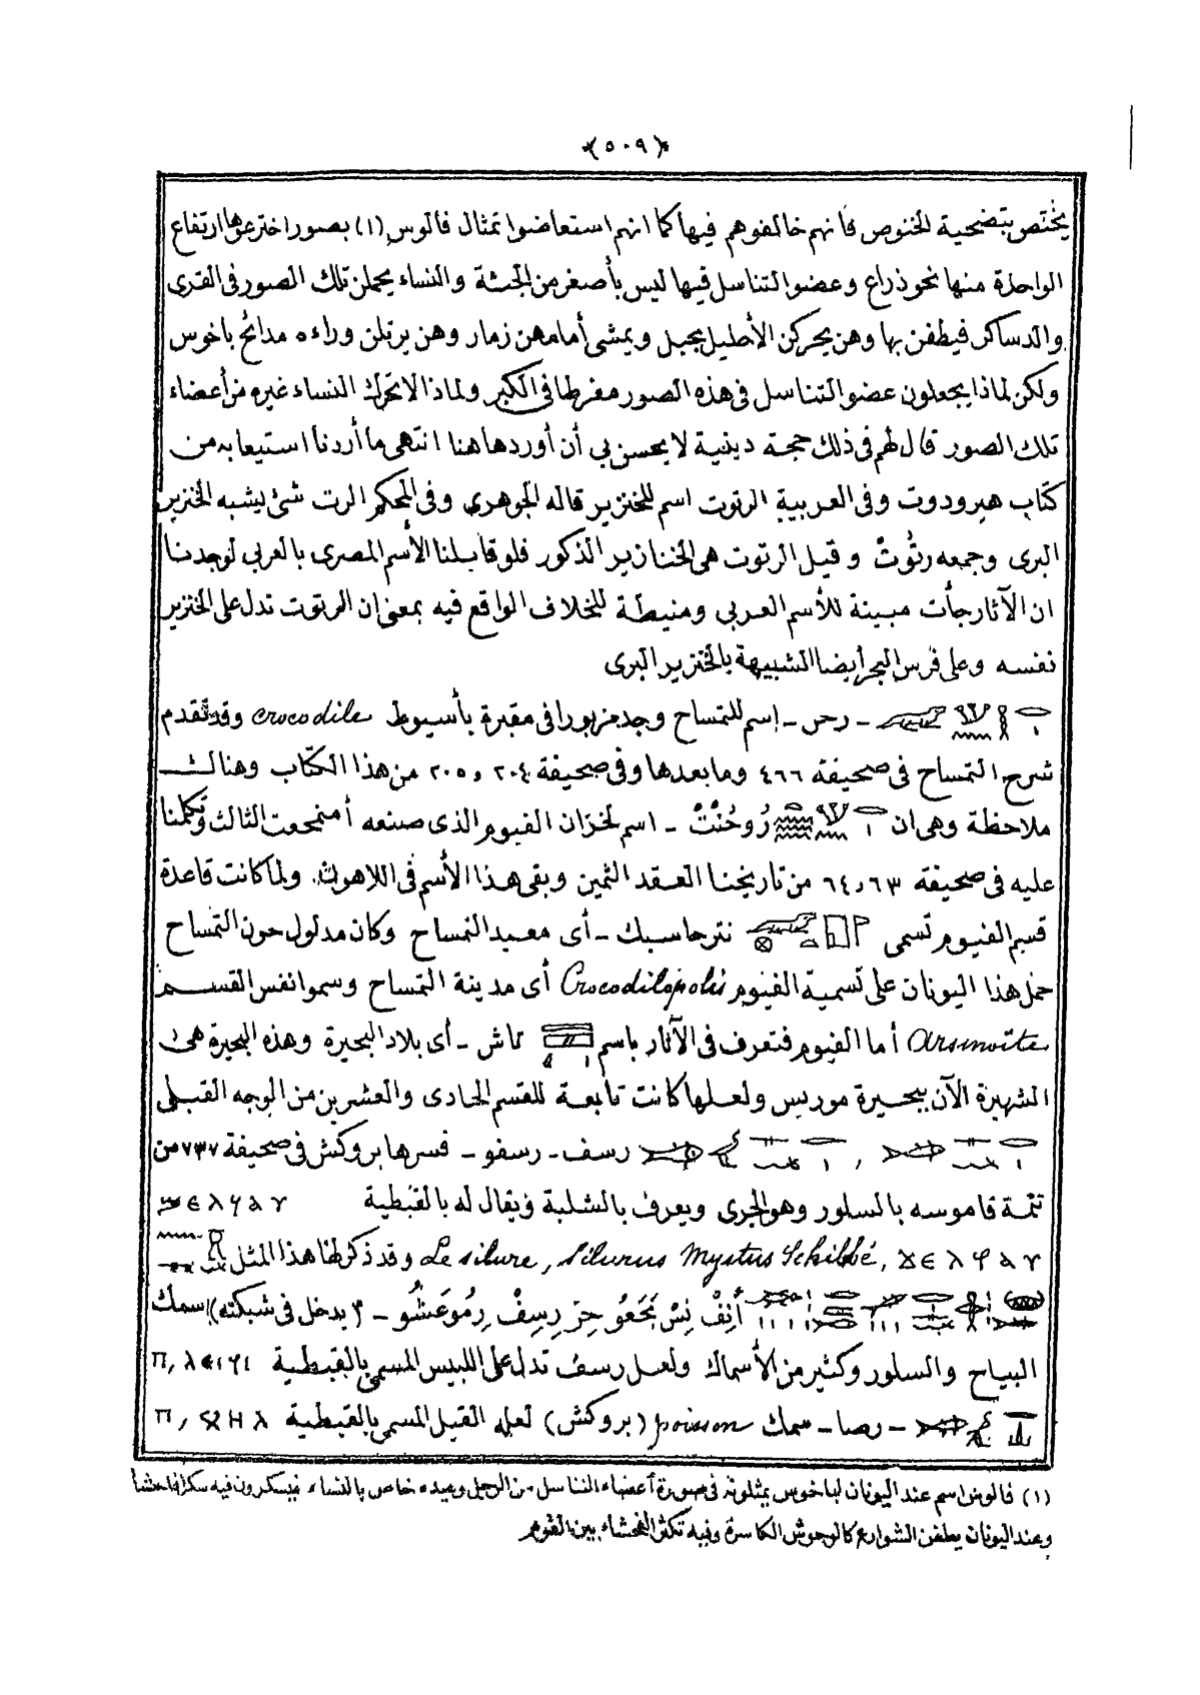 (٥٠٩)
يختص بتضحية الخنوص فأنهم خالفوهم فيها كما انهم استعاضوا تمثال فالوس (١) بصور اخترعوها ارتفاع
الواحدة منها نحو ذراع وعضو التناسل فيها ليس بأصغر من الجثة والنساء يحملن تلك الصور فى القرى
والدساكر فيطفن بها وهن يحركن الأحليل بحبل ويمشى أمامهن زمار وهن يرتلن وراءه مدائح باخوس
ولكن لماذا يجعلون عضو التناسل فى هذه الصور مفرطا فى الكبر ولماذا لا تحرك النساء غيره من أعضاء
تلك الصور قال لهم فى ذلك حجة دينية لا يحسن بي أن أوردها هنا انتهى ما أردنا استيعابه من
كتاب هيرودوت وفى العربية الرتوت اسم للخنزير قاله الجوهرى وفى المحكم الرت شئ يشبه الخنزير
البرى وجمعه رتُوتٌ وقيل الرتوت هى الخنازير الذكور فلو قابلنا الأسم المصرى بالعربي لوجدنا
ان الآثار جأت مبينة للأسم العربي ومنيطة للخلاف الواقع فيه بمعنى ان الرتوت تدل على الخنزير
نفسه وعلى فرس البحر أيضا الشبيهة بالخنزير البرى
ـ رحن ـ إسم للتمساح وجد مزبورا فى مقبرة بأسيوط crocodile وقد تقدم
شرح التمساح فى صحيفة ٤٦٦ وما بعدها وفى صحيفة ٢٠٤ و٢٠٥ من هذا الكتاب وهنالك
ملاحظة وهى ان رُوحُنْتْ ـ اسم لخزان الفيوم الذى صنعه أمنمحعت الثالث وتكلمنا
عليه فى صحيفة ٦٣ و٦٤ من تاريخنا العقد الثمين وبقى هذا الأسم فى اللاهون ولما كانت قاعدة
قسم الفيوم تسمى نترحاسبك ـ أى معبد التمساح وكان مدلول حون التمساح
حمل هذا اليونان على تسمية الفيوم Crocodilopolis أى مدينة التمساح وسموا نفس القسم
Arsinoïte أما الفيوم فتعرف فى الآثار باسم تاش ـ أى بلاد البحيرة وهذه البحيرة هى
الشهيرة الآن ببحيرة موريس ولعلها كانت تابعة للقسم الحادى والعشرين من الوجه القبلى
, رسف ـ رسفو ـ فسرها بروكش فى صحيفة ٧٣٧ من
تتمة قاموسه بالسلور وهو الجرى ويعرف بالشلبة ويقال له بالقبطية
Le silure, silurus Mystus Schilbé, وقد ذكر لها هذا المثل
أَنِفْ نِسْ بَجَعُو حِزَ رِسِفْ رِمُوعَشُو ـ يدخل فى شبكته ((سمك
البياح والسلور وكثير من الأسماك ولعل رسف تدل على اللبيس المسمى بالقبطية
ـ رصا ـ سمك poisson (بروكش) لعله القيل المسمى بالقبطية
(١) فالوس اسم عند اليونان لباخوس يمثلونه فى صورة أعضاء التناسل من الرجل وعيده خاص بالنساء فيسكرون فيه سكرا فاحشا
وعند اليونان يطفن الشوارع كالوحوش الكاسرة وفيه تكثر الفحشاء بين القوم